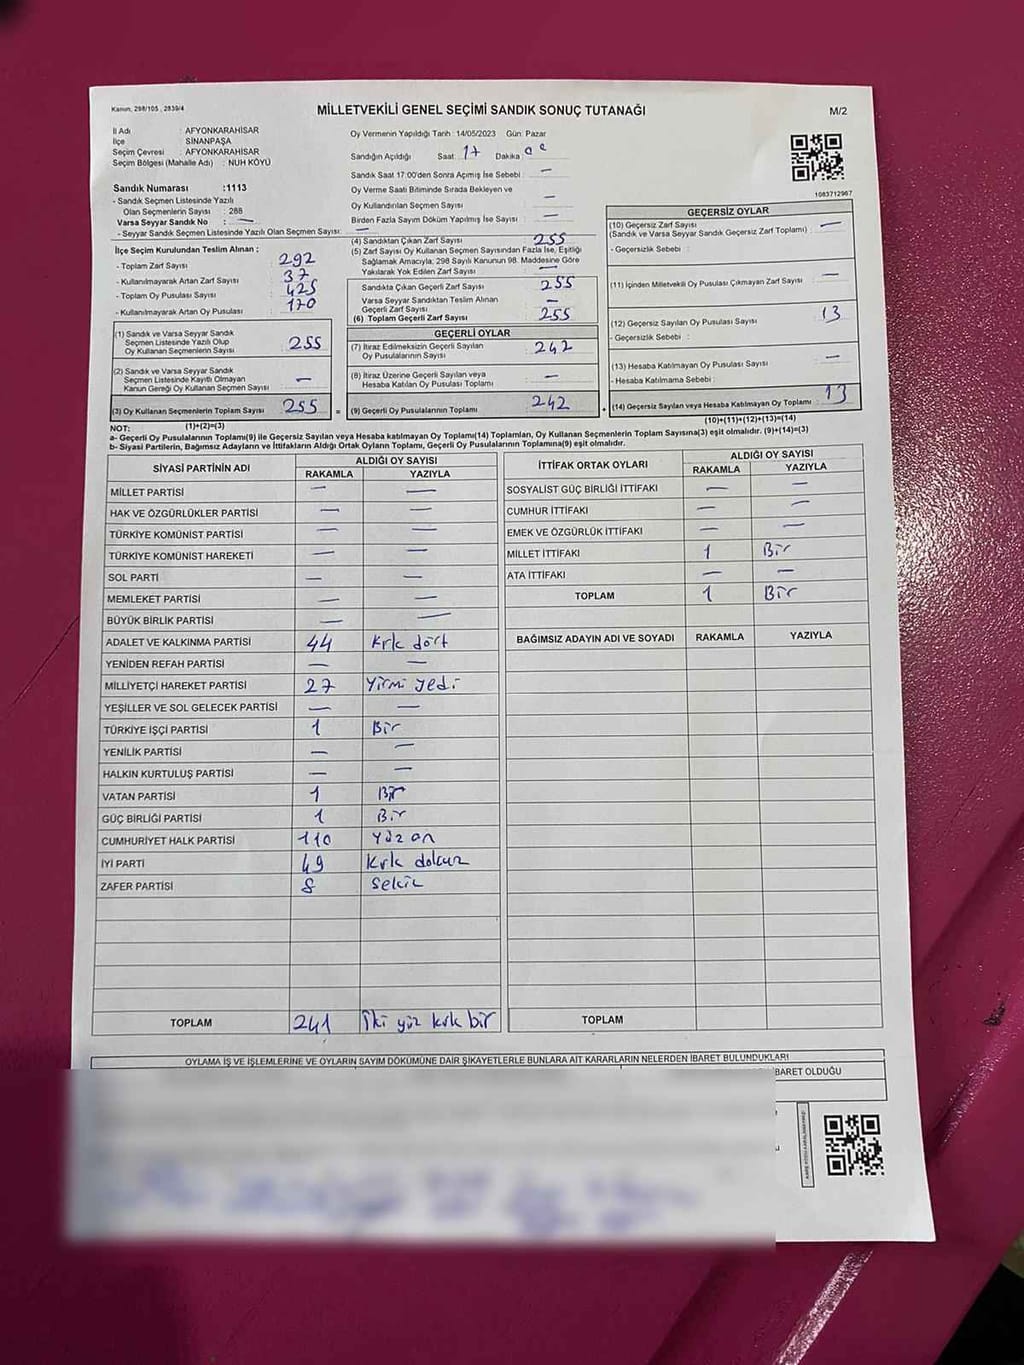 Kanun, 298/105 , 2839/4
MİLLETVEKİLİ GENEL SEÇİMİ SANDIK SONUÇ TUTANAĞI
M/2
İl Adı : AFYONKARAHİSAR
İlçe : SİNANPAŞA
Seçim Çevresi : AFYONKARAHİSAR
Seçim Bölgesi (Mahalle Adı) : NUH KÖYÜ
Sandık Numarası :1113
- Sandık Seçmen Listesinde Yazılı
Olan Seçmenlerin Sayısı : 288
Varsa Seyyar Sandık No : —
- Seyyar Sandık Seçmen Listesinde Yazılı Olan Seçmen Sayısı: —
İlçe Seçim Kurulundan Teslim Alınan :
- Toplam Zarf Sayısı 292
- Kullanılmayarak Artan Zarf Sayısı 37
- Toplam Oy Pusulası Sayısı 425
- Kullanılmayarak Artan Oy Pusulası 170
(1) Sandık ve Varsa Seyyar Sandık
Seçmen Listesinde Yazılı Olup
Oy Kullanan Seçmenlerin Sayısı 255
(2) Sandık ve Varsa Seyyar Sandık
Seçmen Listesinde Kayıtlı Olmayan
Kanun Gereği Oy Kullanan Seçmen Sayısı —
(3) Oy Kullanan Seçmenlerin Toplam Sayısı 255 =
(1)+(2)=(3)
Oy Vermenin Yapıldığı Tarih :14/05/2023 Gün: Pazar
Sandığın Açıldığı Saat 17 Dakika 00
Sandık Saat 17:00'den Sonra Açımış İse Sebebi : —
Oy Verme Saati Bitiminde Sırada Bekleyen ve
Oy Kullandırılan Seçmen Sayısı —
Birden Fazla Sayım Döküm Yapılmış İse Sayısı —
(4) Sandıktan Çıkan Zarf Sayısı 255
(5) Zarf Sayısı Oy Kullanan Seçmen Sayısından Fazla İse, Eşitliği
Sağlamak Amacıyla; 298 Sayılı Kanunun 98. Maddesine Göre
Yakılarak Yok Edilen Zarf Sayısı —
Sandıkta Çıkan Geçerli Zarf Sayısı 255
Varsa Seyyar Sandıktan Teslim Alınan
Geçerli Zarf Sayısı —
(6) Toplam Geçerli Zarf Sayısı 255
GEÇERLİ OYLAR
(7) İtiraz Edilmeksizin Geçerli Sayılan
Oy Pusulalarının Sayısı 242
(8) İtiraz Üzerine Geçerli Sayılan veya
Hesaba Katılan Oy Pusulası Toplamı —
(9) Geçerli Oy Pusulalarının Toplamı 242 +
1083712967
GEÇERSİZ OYLAR
(10) Geçersiz Zarf Sayısı
(Sandık ve Varsa Seyyar Sandık Geçersiz Zarf Toplamı) : —
- Geçersizlik Sebebi :
(11) İçinden Milletvekili Oy Pusulası Çıkmayan Zarf Sayısı —
(12) Geçersiz Sayılan Oy Pusulası Sayısı 13
- Geçersizlik Sebebi :
(13) Hesaba Katılmayan Oy Pusulası Sayısı —
- Hesaba Katılmama Sebebi :
(14) Geçersiz Sayılan veya Hesaba Katılmayan Oy Toplamı : 13
(10)+(11)+(12)+(13)=(14)
NOT:
a- Geçerli Oy Pusulalarının Toplamı(9) ile Geçersiz Sayılan veya Hesaba katılmayan Oy Toplamı(14) Toplamları, Oy Kullanan Seçmenlerin Toplam Sayısına(3) eşit olmalıdır. (9)+(14)=(3)
b- Siyasi Partilerin, Bağımsız Adayların ve İttifakların Aldığı Ortak Oyların Toplamı, Geçerli Oy Pusulalarının Toplamına(9) eşit olmalıdır.
SİYASİ PARTİNİN ADI ALDIĞI OY SAYISI
RAKAMLA YAZIYLA
MİLLET PARTİSİ — —
HAK VE ÖZGÜRLÜKLER PARTİSİ — —
TÜRKİYE KOMÜNİST PARTİSİ — —
TÜRKİYE KOMÜNİST HAREKETİ — —
SOL PARTİ — —
MEMLEKET PARTİSİ — —
BÜYÜK BİRLİK PARTİSİ — —
ADALET VE KALKINMA PARTİSİ 44 Kırk dört
YENİDEN REFAH PARTİSİ — —
MİLLİYETÇİ HAREKET PARTİSİ 27 Yirmi yedi
YEŞİLLER VE SOL GELECEK PARTİSİ — —
TÜRKİYE İŞÇİ PARTİSİ 1 Bir
YENİLİK PARTİSİ — —
HALKIN KURTULUŞ PARTİSİ — —
VATAN PARTİSİ 1 Bir
GÜÇ BİRLİĞİ PARTİSİ 1 Bir
CUMHURİYET HALK PARTİSİ 110 Yüz on
İYİ PARTİ 49 Kırk dokuz
ZAFER PARTİSİ 8 Sekiz
TOPLAM 241 İki yüz kırk bir
İTTİFAK ORTAK OYLARI ALDIĞI OY SAYISI
RAKAMLA YAZIYLA
SOSYALİST GÜÇ BİRLİĞİ İTTİFAKI — —
CUMHUR İTTİFAKI — —
EMEK VE ÖZGÜRLÜK İTTİFAKI — —
MİLLET İTTİFAKI 1 Bir
ATA İTTİFAKI — —
TOPLAM 1 Bir
BAĞIMSIZ ADAYIN ADI VE SOYADI RAKAMLA YAZIYLA
TOPLAM
OYLAMA İŞ VE İŞLEMLERİNE VE OYLARIN SAYIM DÖKÜMÜNE DAİR ŞİKAYETLERLE BUNLARA AİT KARARLARIN NELERDEN İBARET BULUNDUKLARI
İBARET OLDUĞU